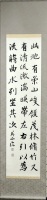 此地有崇山峻領茂林修竹又
有清流激湍映帶左右引以為
流觴曲水列坐其次